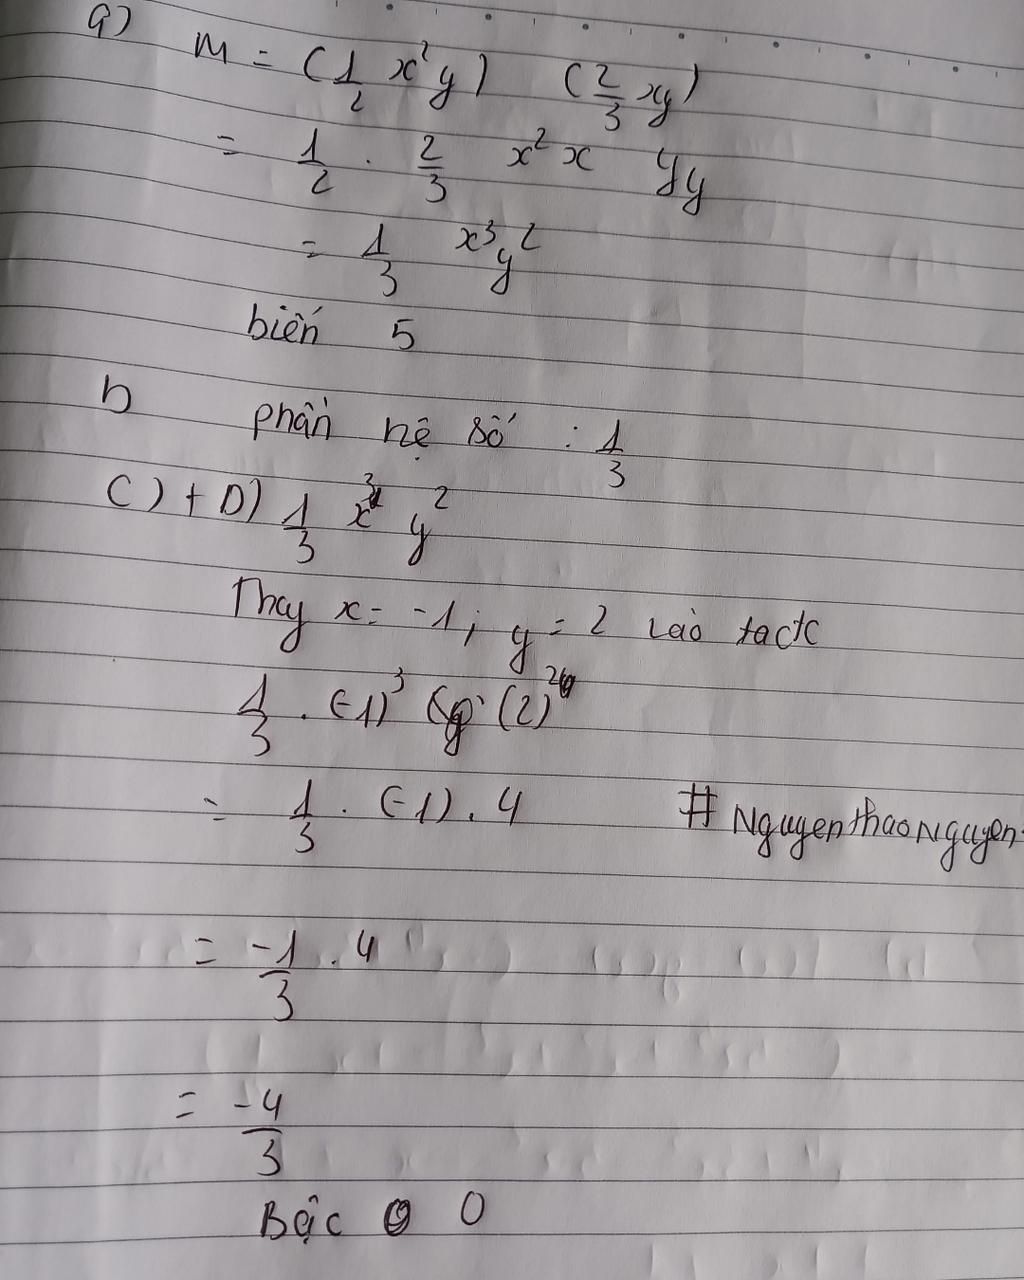 a) M = (1/2 x²y) (2/3 xy)
= 1/2 . 2/3 x²x yy
= 1/3 x³y²
biến 5
b phần hệ số : 1/3
C) + D) 1/3 x³ y²
Thay x = -1; y = 2 vào
1/3 . (-1)³ . (2)²
= 1/3 . (-1) . 4
#NguyenthaoNguyen
= -1/3 . 4
= -4/3
Bậc 0